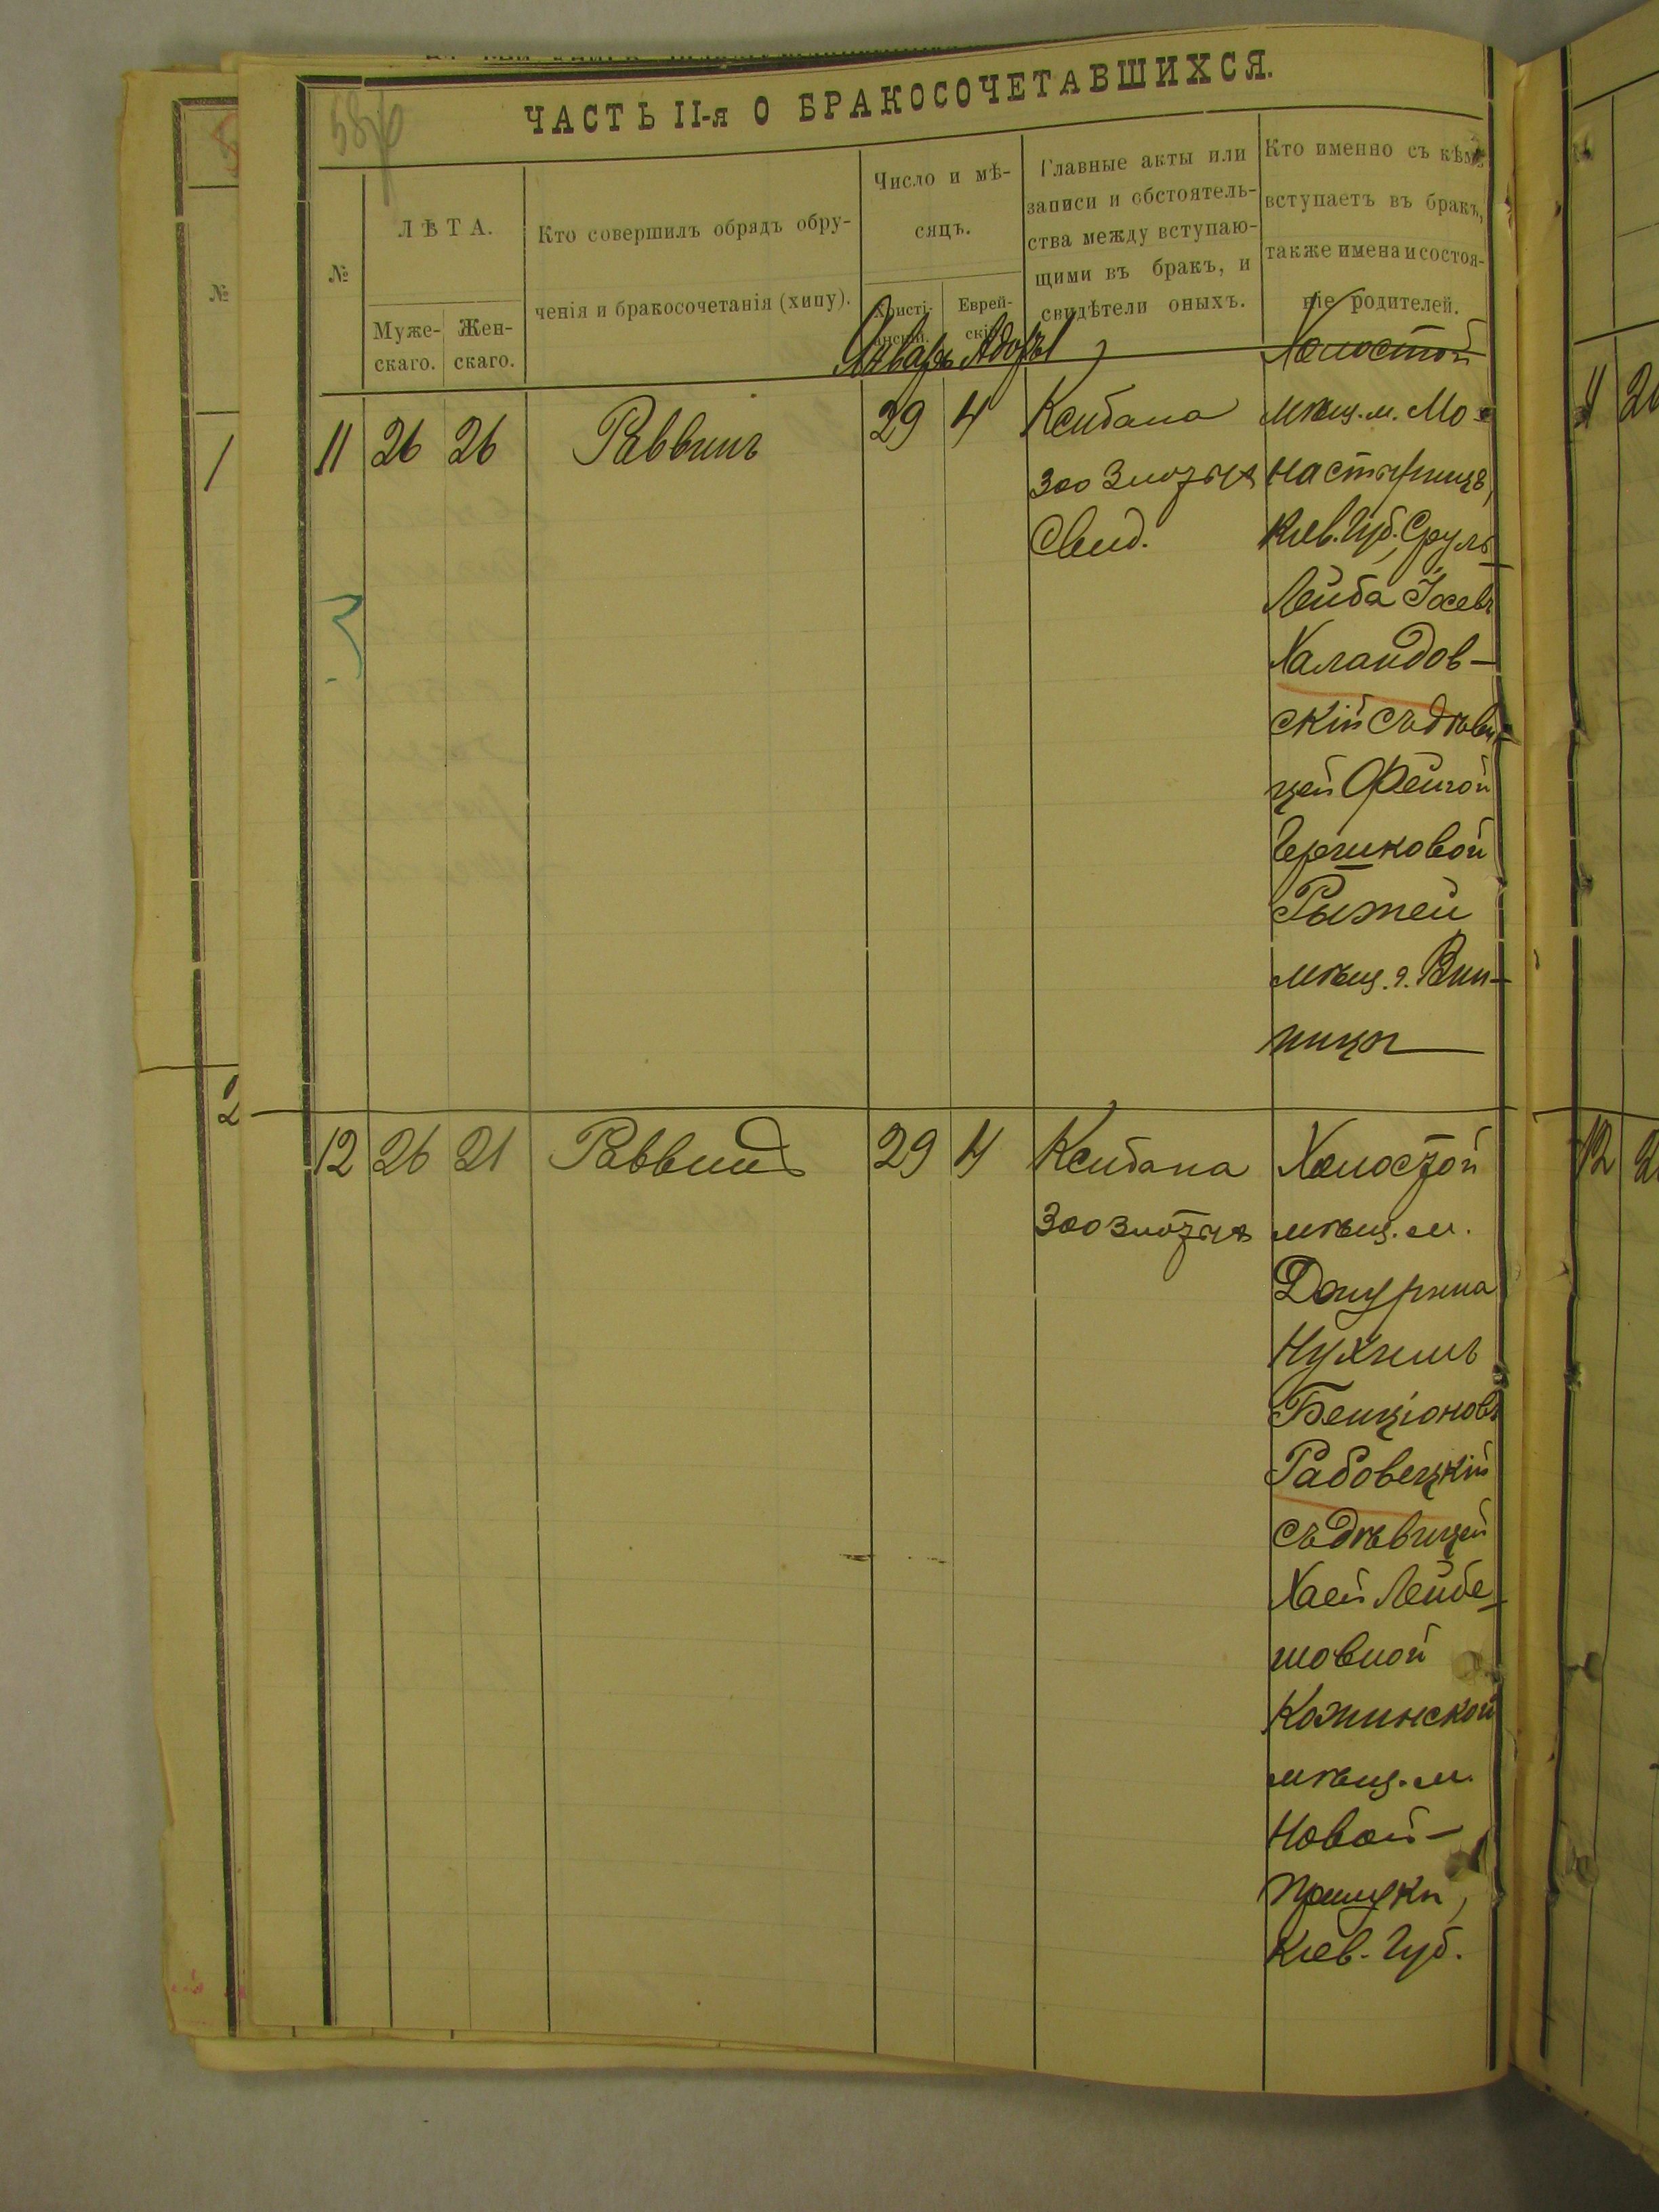 ЧАСТЬ II-я О БРАКОСОЧЕТАВШИХСЯ.
№
ЛѢТА.
Муже-
скаго.
Жен-
скаго.
Кто совершилъ обрядъ обру-
ченія и бракосочетанія (хипу).
Число и мѣ-
сяцъ.
Христі-
анскій.
Еврей-
скій.
Главные акты или
записи и обстоятель-
ства между вступаю-
щими въ бракъ, и
свидѣтели оныхъ.
Кто именно съ кѣмъ
вступаетъ въ бракъ,
также имена и состоя-
ніе родителей.
Январь Адоръ
11 26 26 Раввинъ 29 4
Ксибана
300 злотыхъ
Свид.
Холостой
мѣщ. м. Мо-
настырища,
Кіев. Губ. Сруль
Лейба Іосевъ
Халаидов-
скій съ дѣви-
цей Фейгой
Гершковой
Рыжей
мѣщ. г. Вин-
ницы
12 26 21 Раввинъ 29 4
Ксибана
300 злотыхъ
Холостой
мѣщ. м.
Джурина
Нухимъ
Бенціоновъ
Рабовецкій
съ дѣвицей
Хаей Лейбе-
шовной
Кожинской
мѣщ. м.
Новой-
Прилуки,
Кіев. Губ.
№
1
2
11
12